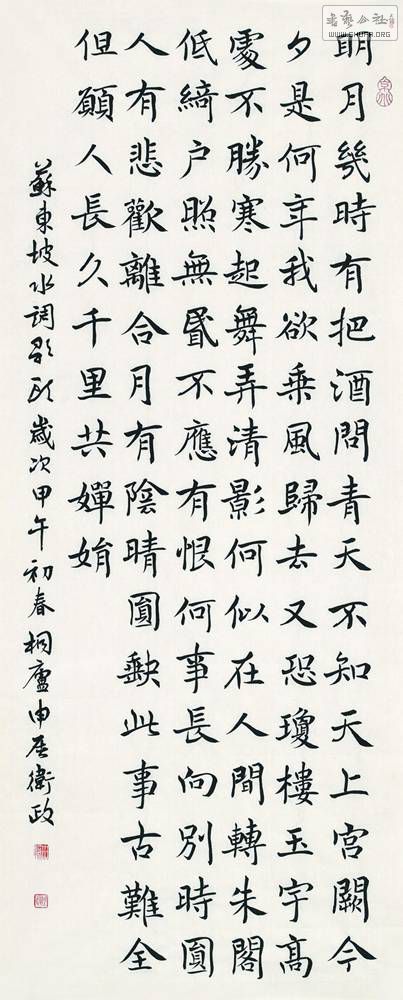 明月幾時有把酒問青天不知天上宮闕今
夕是何年我欲乘風歸去又恐瓊樓玉宇高
處不勝寒起舞弄清影何似在人間轉朱閣
低綺户照無眠不應有恨何事長向別時圓
人有悲歡離合月有陰晴圓缺此事古難全
但願人長久千里共嬋娟
蘇東坡水調歌頭歲次甲午初春桐廬申屠衛政
書藝公社
WWW.SHUFA.ORG